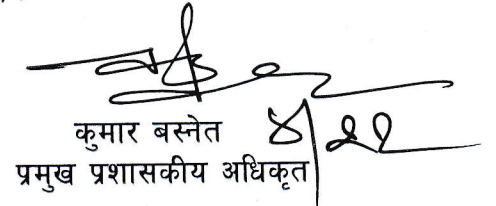 कुमार बस्नेत
४/२१
प्रमुख प्रशासकीय अधिकृत